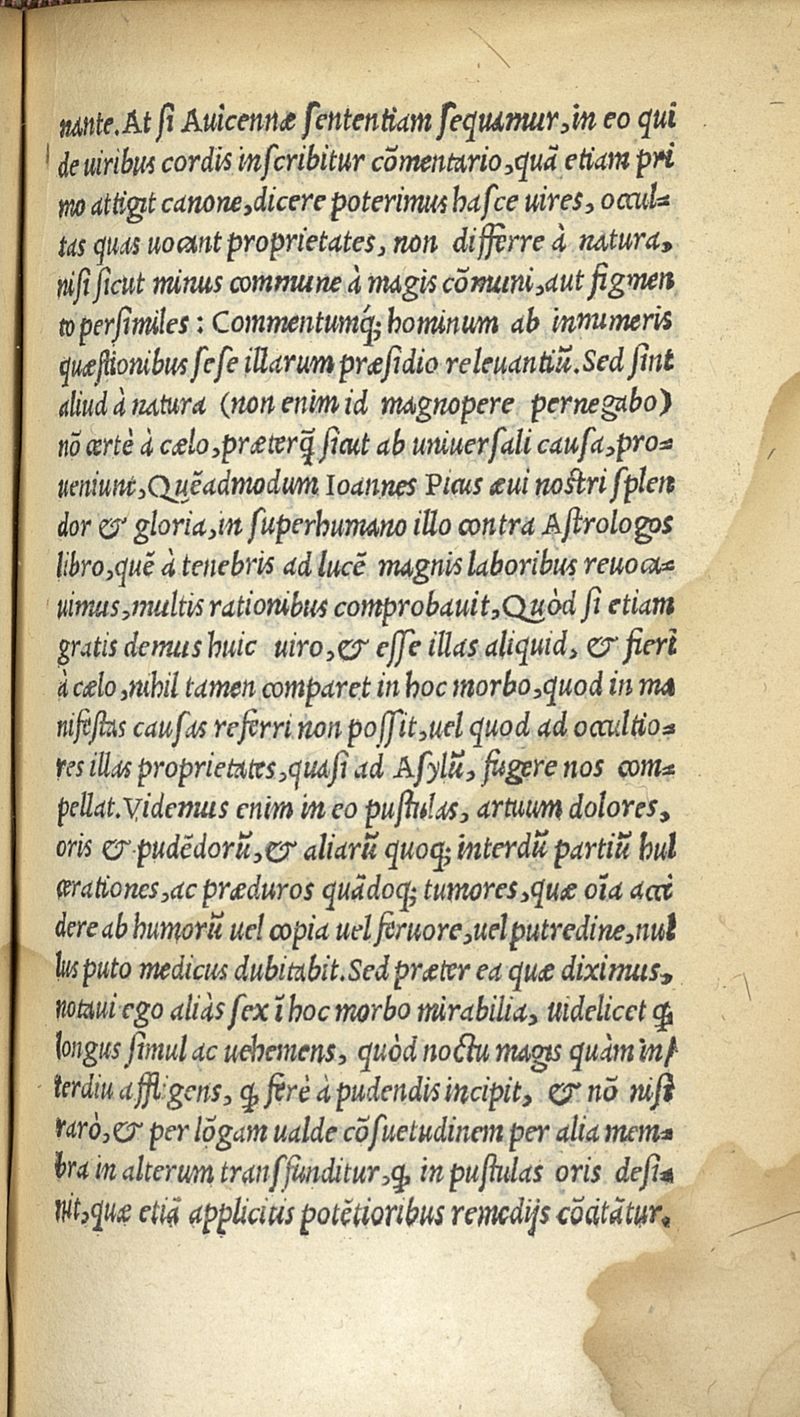 nante. At ſi Auicennæ ſententiam ſequamur, in eo qui
de uiribus cordis inſcribitur cõmentario, quã etiam pri
mo attigit canone, dicere poterimus haſce uires, occul⸗
tas quas uocant proprietates, non differre à natura,
niſi ſicut minus commune à magis cõmuni, aut figmen
to perſimiles : Commentumq́; hominum ab innumeris
quæſtionibus ſeſe illarum præſidio releuantiũ. Sed ſint
aliud à natura (non enim id magnopere pernegabo)
nõ certè à cælo, præterq̃ ſicut ab uniuerſali cauſa, pro⸗
ueniunt, Quẽadmodum Ioannes Picus æui noſtri ſplen
dor & gloria, in ſuperhumano illo contra Aſtrologos
libro, quẽ à tenebris ad lucẽ magnis laboribus reuoca⸗
uimus, multis rationibus comprobauit, Quòd ſi etiam
gratis demus huic uiro, & eſſe illas aliquid, & fieri
à cælo, nihil tamen comparet in hoc morbo, quod in ma
nifeſtas cauſas referri non poſſit, uel quod ad occultio⸗
res illas proprietates, quaſi ad Aſylũ, fugere nos com⸗
pellat. Videmus enim in eo puſtulas, artuum dolores,
oris & pudẽdorũ, & aliarũ quoq; interdũ partiũ hul
cerationes, ac præduros quãdoq; tumores, quæ oĩa acci
dere ab humorũ uel copia uel feruore, uel putredine, nul
lus puto medicus dubitabit. Sed præter ea quæ diximus,
notaui ego aliàs ſex ĩ hoc morbo mirabilia, uidelicet ꝙ
longus ſimul ac uehemens, quòd noctu magis quàm in⸗
terdiu affligens, ꝙ ferè à pudendis incipit, & nõ niſi
rarò, & per lõgam ualde cõſuetudinem per alia mem⸗
bra in alterum tranſfunditur, ꝙ in puſtulas oris deſi⸗
nit, quæ etiã applicitis potẽtioribus remedijs cõcitãtur.